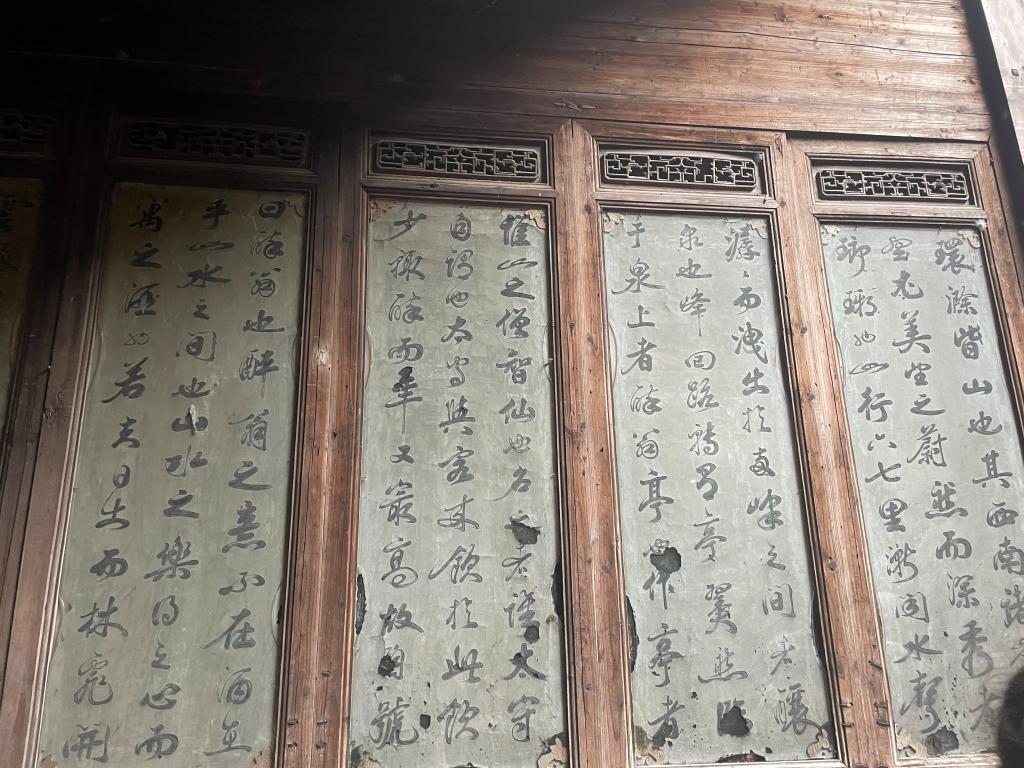 環滁皆山也其西南諸
壑尤美望之蔚然而深秀者
瑯琊也山行六七里漸聞水聲
潺潺而洩出於兩峰之間者釀
泉也峰回路轉有亭翼然臨
于泉上者醉翁亭也作亭者
誰山之僧智仙也名之者誰太守
自謂也太守與客來飲於此飲
少輒醉而年又最高故自號
曰醉翁也醉翁之意不在酒在
乎山水之間也山水之樂得之心而
寓之酒也若夫日出而林霏開
雲